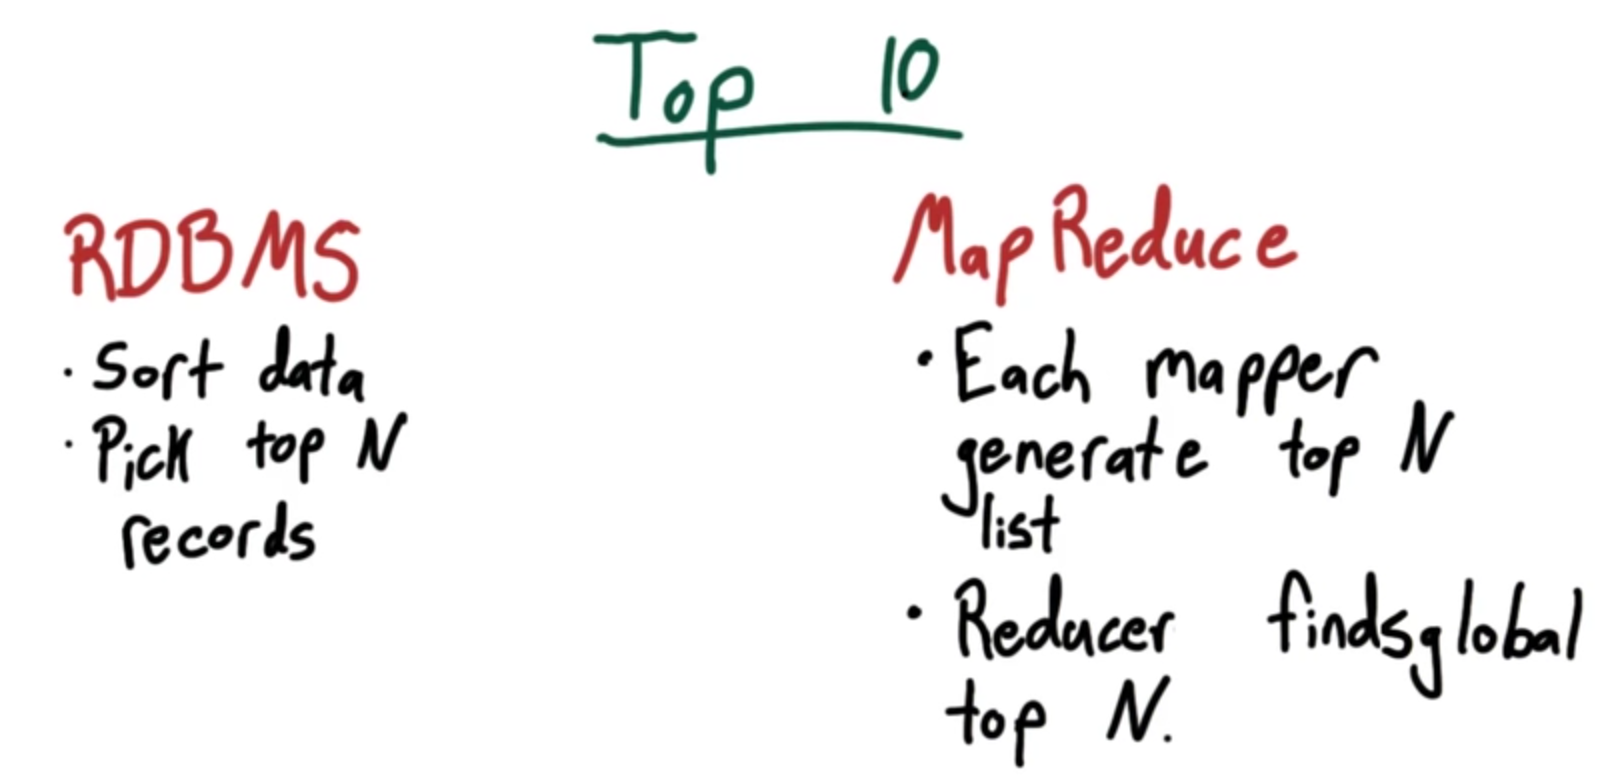 Top 10
RDBMS
· Sort data
· Pick top N
records
MapReduce
· Each mapper
generate top N
list
· Reducer finds global
top N.